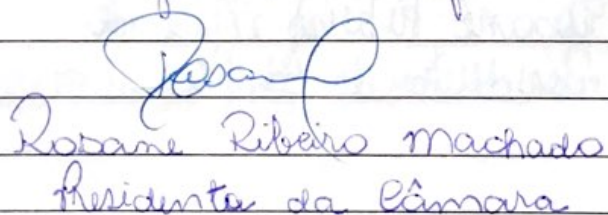 Rosane
Rosane Ribeiro Machado
Presidenta da Câmara